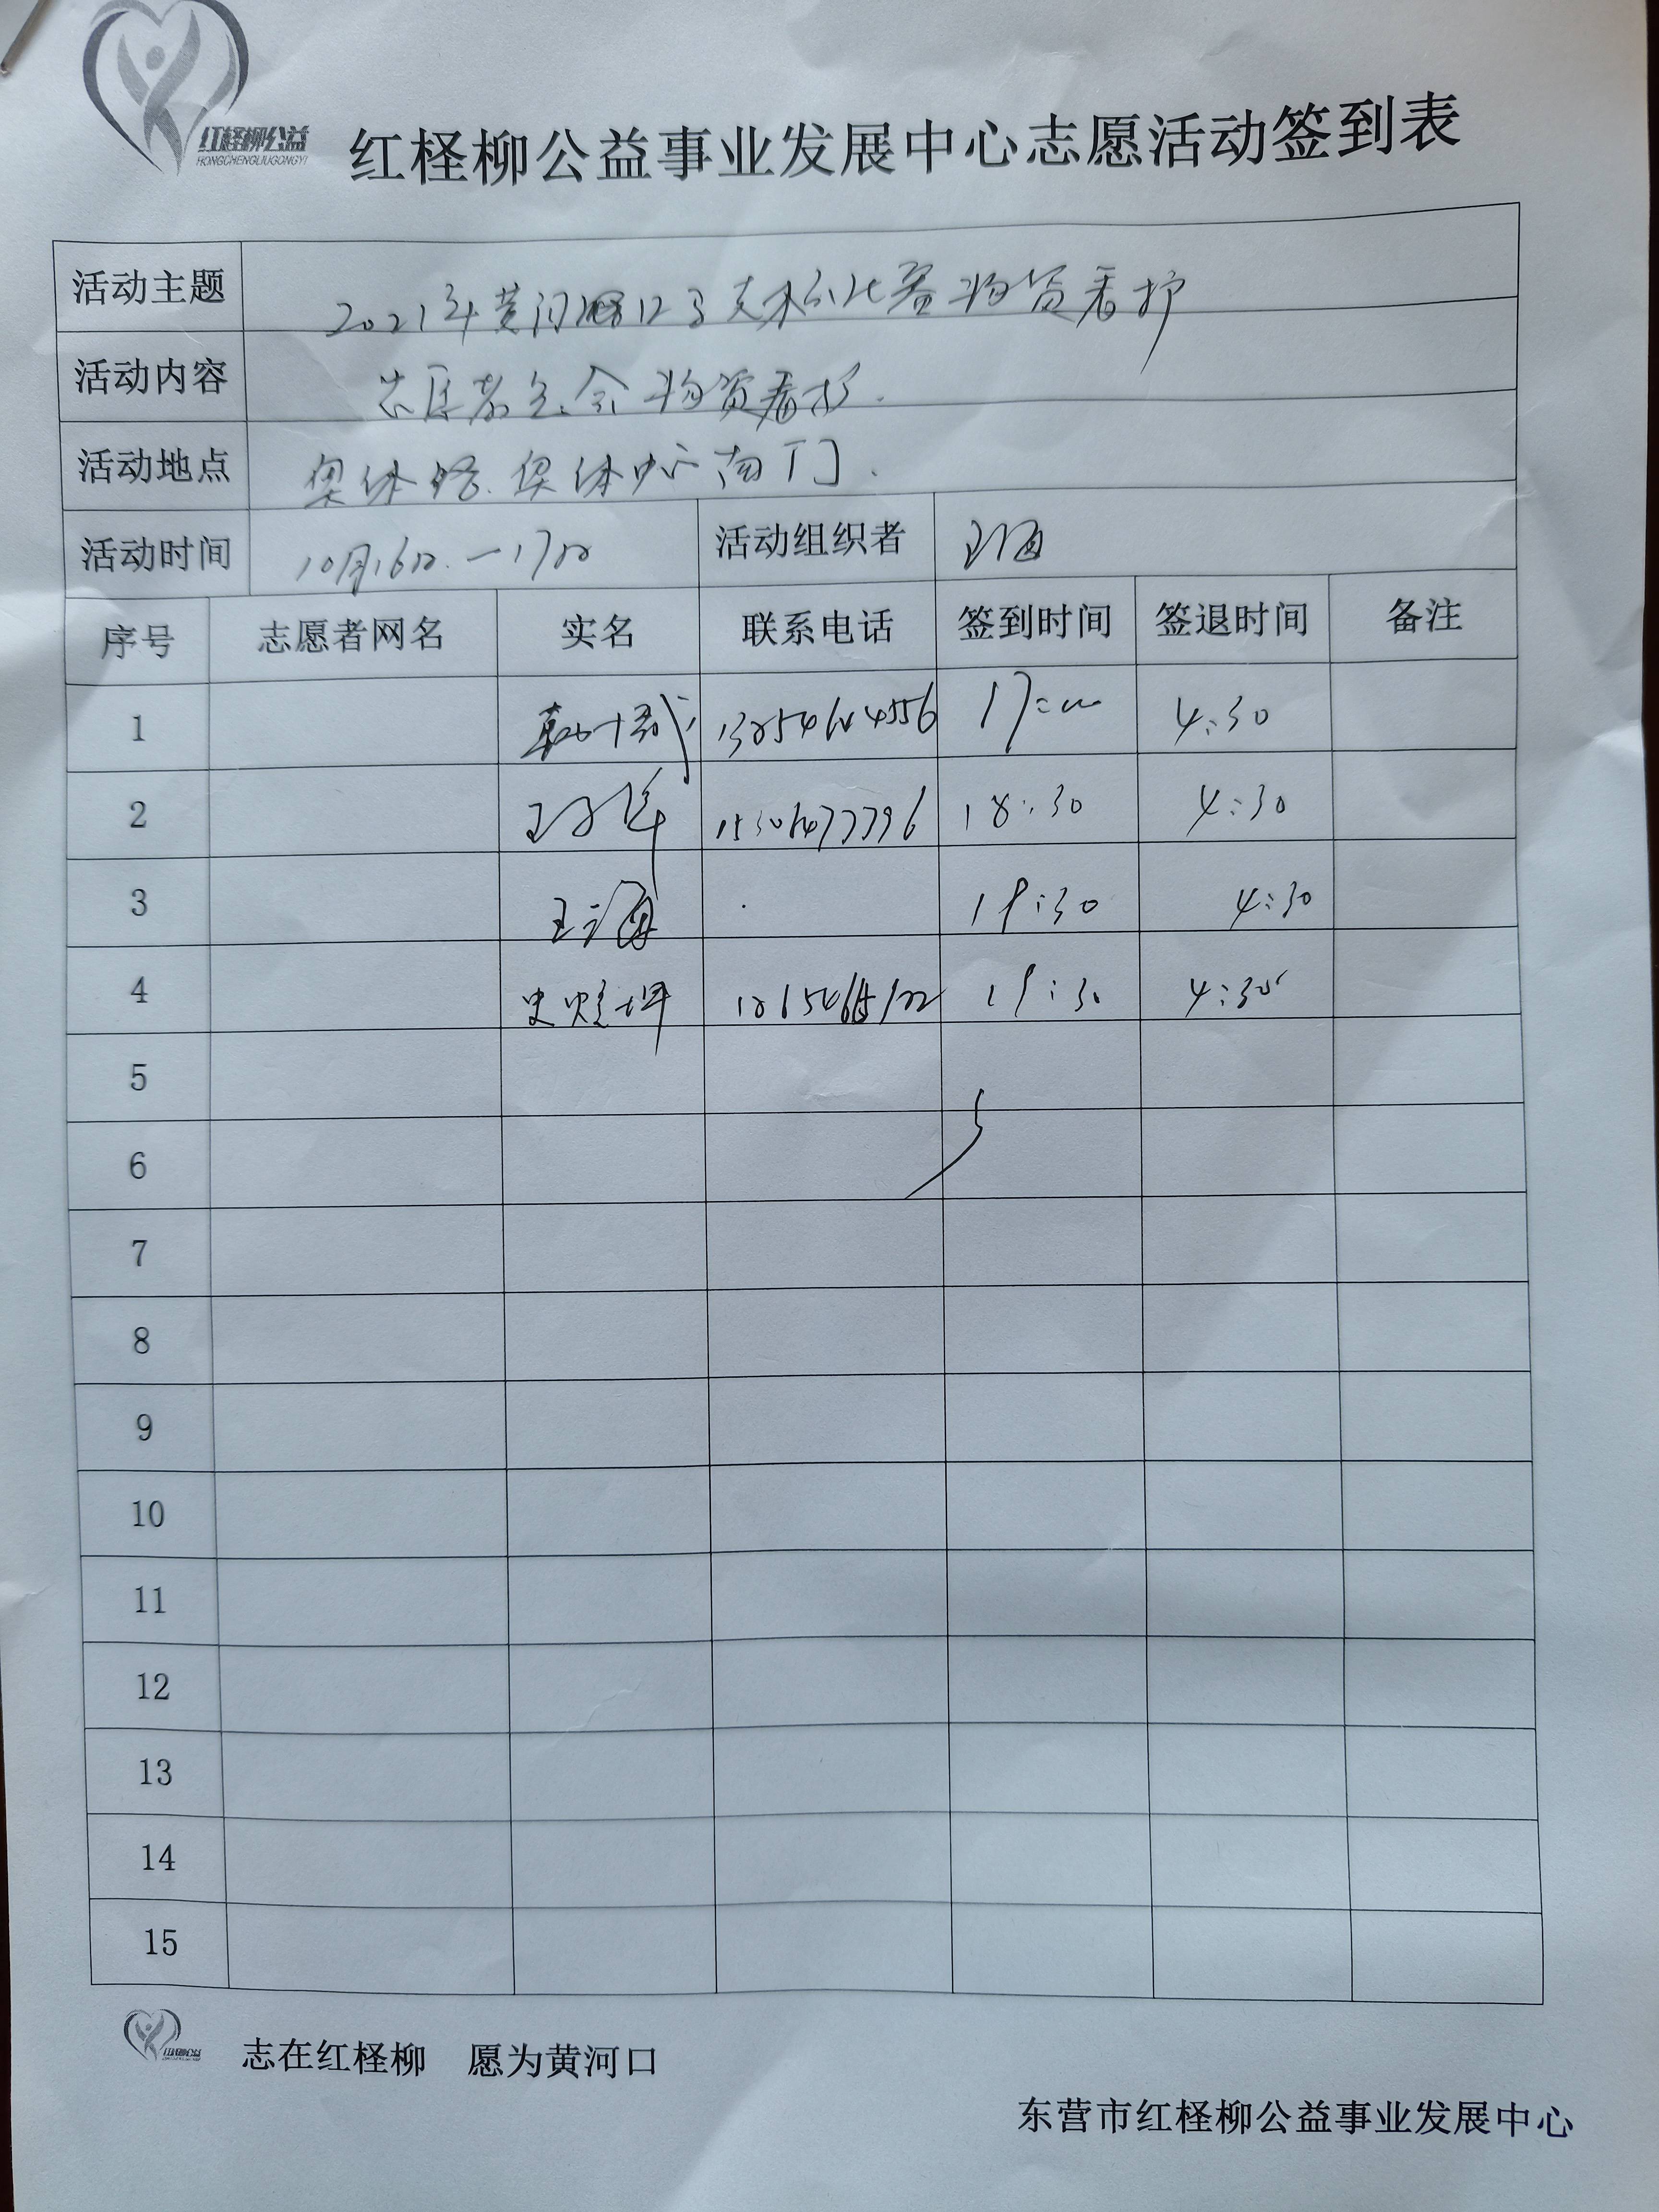 红柽柳公益
HONGCHENGLIUGONGYI
红柽柳公益事业发展中心志愿活动签到表
活动主题 2021年黄河 比赛物资看护
活动内容 志愿者 物资看护.
活动地点 奥体路.奥体中心南门.
活动时间 10月16日.一17日 活动组织者 王海
序号 志愿者网名 实名 联系电话 签到时间 签退时间 备注
1 17:00 4:30
2 18:30 4:30
3 王海 19:30 4:30
4 19:30 4:30
5
6
7
8
9
10
11
12
13
14
15
红柽柳公益
志在红柽柳 愿为黄河口
东营市红柽柳公益事业发展中心